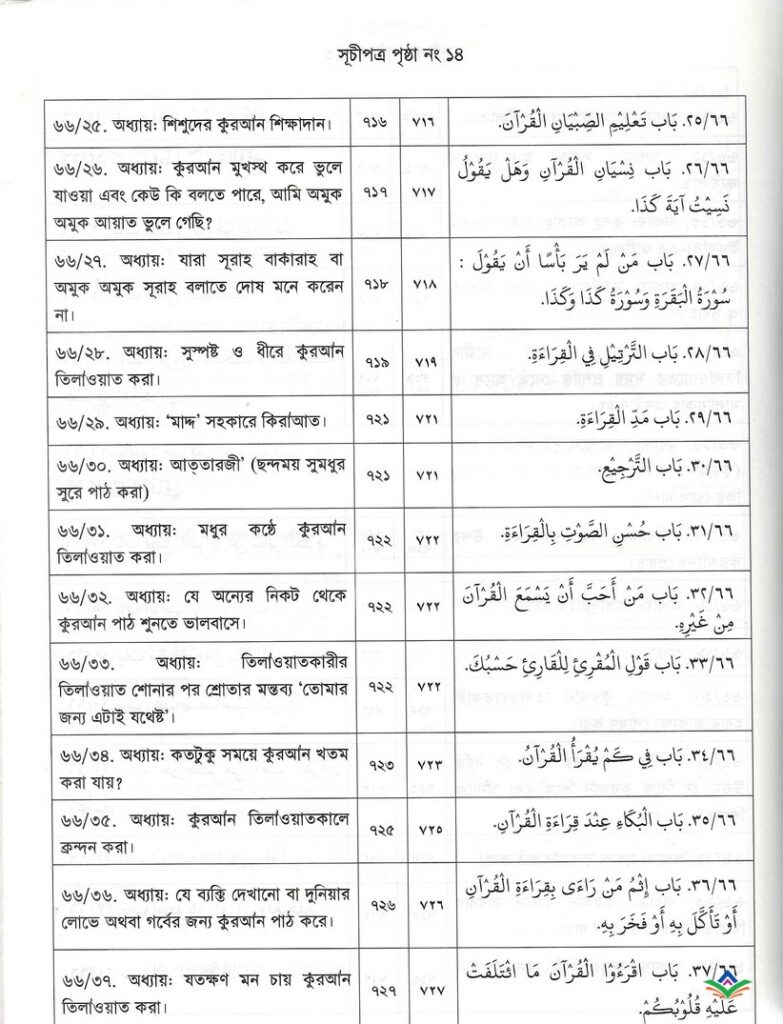 সূচীপত্র পৃষ্ঠা নং ১৪
৬৬/২৫. অধ্যায়ঃ শিশুদের কুরআন শিক্ষাদান। ৭১৬ ٧١٦ ٢٥/٦٦. بَاب تَعْلِيْمِ الصِّبْيَانِ الْقُرْآنَ.
৬৬/২৬. অধ্যায়ঃ কুরআন মুখস্থ করে ভুলে
যাওয়া এবং কেউ কি বলতে পারে, আমি অমুক
অমুক আয়াত ভুলে গেছি?
৭১৭ ٧١٧
٢٦/٦٦. بَاب نِسْيَانِ الْقُرْآنِ وَهَلْ يَقُوْلُ
نَسِيْتُ آيَةَ كَذَا.
৬৬/২৭. অধ্যায়ঃ যারা সূরাহ বাকারাহ বা
অমুক অমুক সূরাহ বলাতে দোষ মনে করেন
না।
৭১৮ ٧١٨
٢٧/٦٦. بَاب مَنْ لَمْ يَرَ بَأْسًا أَنْ يَقُوْلَ :
سُوْرَةُ الْبَقَرَةِ وَسُوْرَةُ كَذَا وَكَذَا.
৬৬/২৮. অধ্যায়ঃ সুস্পষ্ট ও ধীরে কুরআন
তিলাওয়াত করা।
৭১৯ ٧١٩
٢٨/٦٦. بَاب التَّرْتِيْلِ فِي الْقِرَاءَةِ.
৬৬/২৯. অধ্যায়ঃ ‘মাদ্দ’ সহকারে কিরাআত। ৭২১ ٧٢١ ٢٩/٦٦. بَاب مَدِّ الْقِرَاءَةِ.
৬৬/৩০. অধ্যায়ঃ আত্‌তারজী‘ (ছন্দময় সুমধুর
সুরে পাঠ করা)
৭২১ ٧٢١
٣٠/٦٦. بَاب التَّرْجِيْعِ.
৬৬/৩১. অধ্যায়ঃ মধুর কণ্ঠে কুরআন
তিলাওয়াত করা।
৭২২ ٧٢٢
٣١/٦٦. بَاب حُسْنِ الصَّوْتِ بِالْقِرَاءَةِ.
৬৬/৩২. অধ্যায়ঃ যে অন্যের নিকট থেকে
কুরআন পাঠ শুনতে ভালবাসে।
৭২২ ٧٢٢
٣٢/٦٦. بَاب مَنْ أَحَبَّ أَنْ يَسْمَعَ الْقُرْآنَ
مِنْ غَيْرِهِ.
৬৬/৩৩. অধ্যায়ঃ তিলাওয়াতকারীর
তিলাওয়াত শোনার পর শ্রোতার মন্তব্য ‘তোমার
জন্য এটাই যথেষ্ট’।
৭২২ ٧٢٢
٣٣/٦٦. بَاب قَوْلِ الْمُقْرِئِ لِلْقَارِئِ حَسْبُكَ.
৬৬/৩৪. অধ্যায়ঃ কতটুকু সময়ে কুরআন খতম
করা যায়?
৭২৩ ٧٢٣
٣٤/٦٦. بَاب فِي كَمْ يُقْرَأُ الْقُرْآنُ.
৬৬/৩৫. অধ্যায়ঃ কুরআন তিলাওয়াতকালে
ক্রন্দন করা।
৭২৫ ٧٢٥
٣٥/٦٦. بَاب الْبُكَاءِ عِنْدَ قِرَاءَةِ الْقُرْآنِ.
৬৬/৩৬. অধ্যায়ঃ যে ব্যক্তি দেখানো বা দুনিয়ার
লোভে অথবা গর্বের জন্য কুরআন পাঠ করে।
৭২৬ ٧٢٦
٣٦/٦٦. بَاب إِثْمِ مَنْ رَاءَى بِقِرَاءَةِ الْقُرْآنِ
أَوْ تَأَكَّلَ بِهِ أَوْ فَخَرَ بِهِ.
৬৬/৩৭. অধ্যায়ঃ যতক্ষণ মন চায় কুরআন
তিলাওয়াত করা।
৭২৭ ٧٢٧
٣٧/٦٦. بَاب اقْرَءُوا الْقُرْآنَ مَا ائْتَلَفَتْ
عَلَيْهِ قُلُوْبُكُمْ.